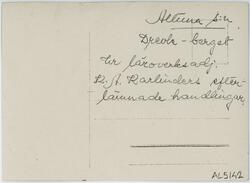 Altuna s:n
Drevle-berget
Ur läroverksadj.
R. A. Karlinders efter-
lämnade handlingar.
AL5142